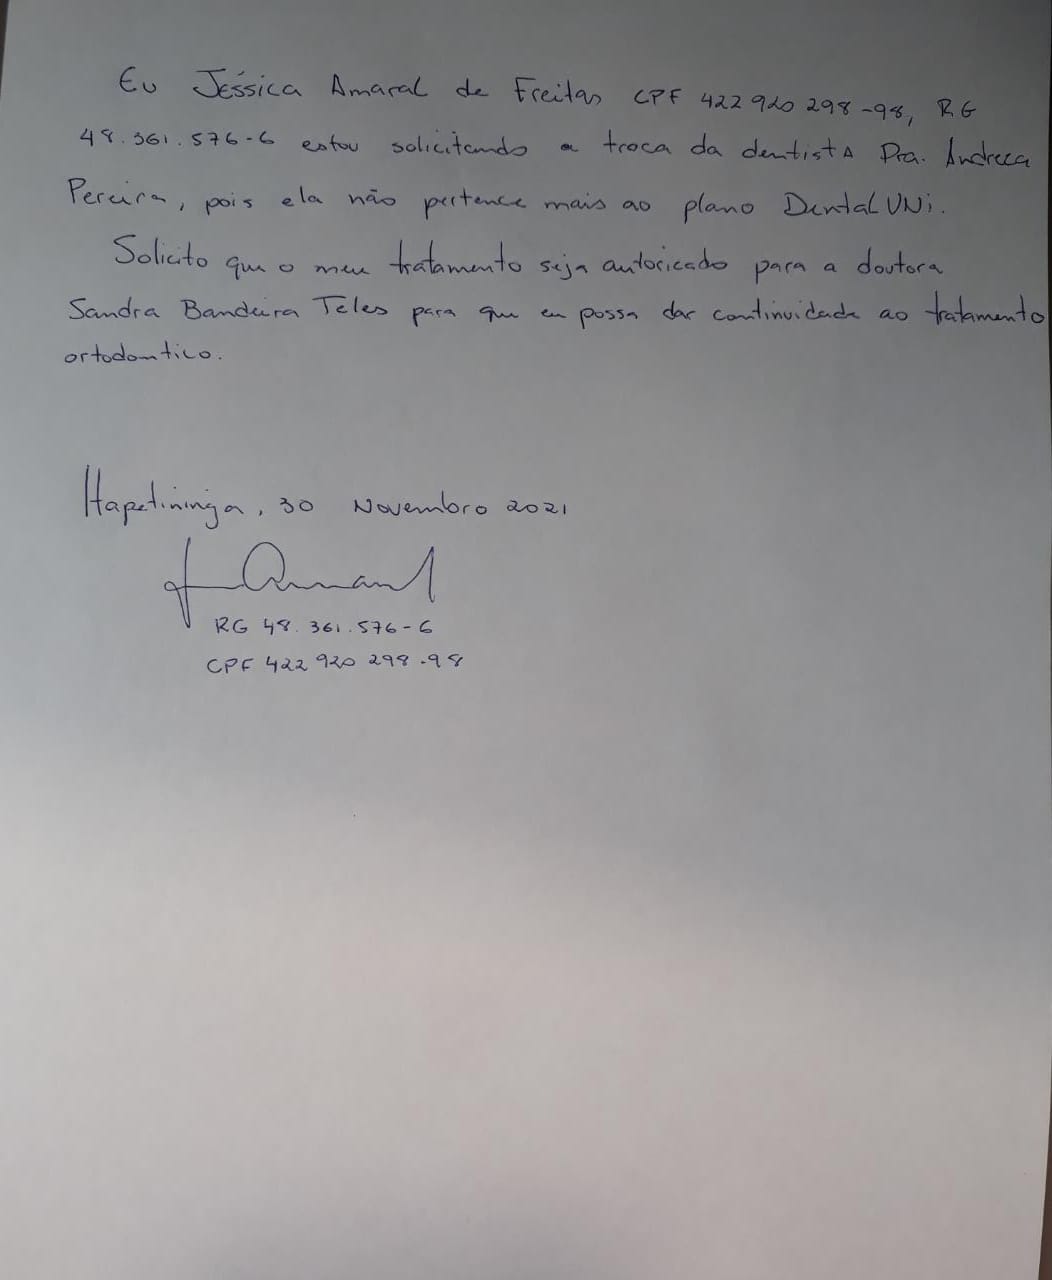 Eu Jéssica Amaral de Freitas CPF 422 920 298-98, RG
48.361.576-6 estou solicitando a troca da dentista Dra. Andreea
Pereira, pois ela não pertence mais ao plano Dental UNi.
Solicito que o meu tratamento seja autoricado para a doutora
Sandra Bandeira Teles para que eu possa dar continuidade ao tratamento
ortodontico.
Itapetininga, 30 Novembro 2021
J Amaral
RG 48.361.576-6
CPF 422 920 298-98